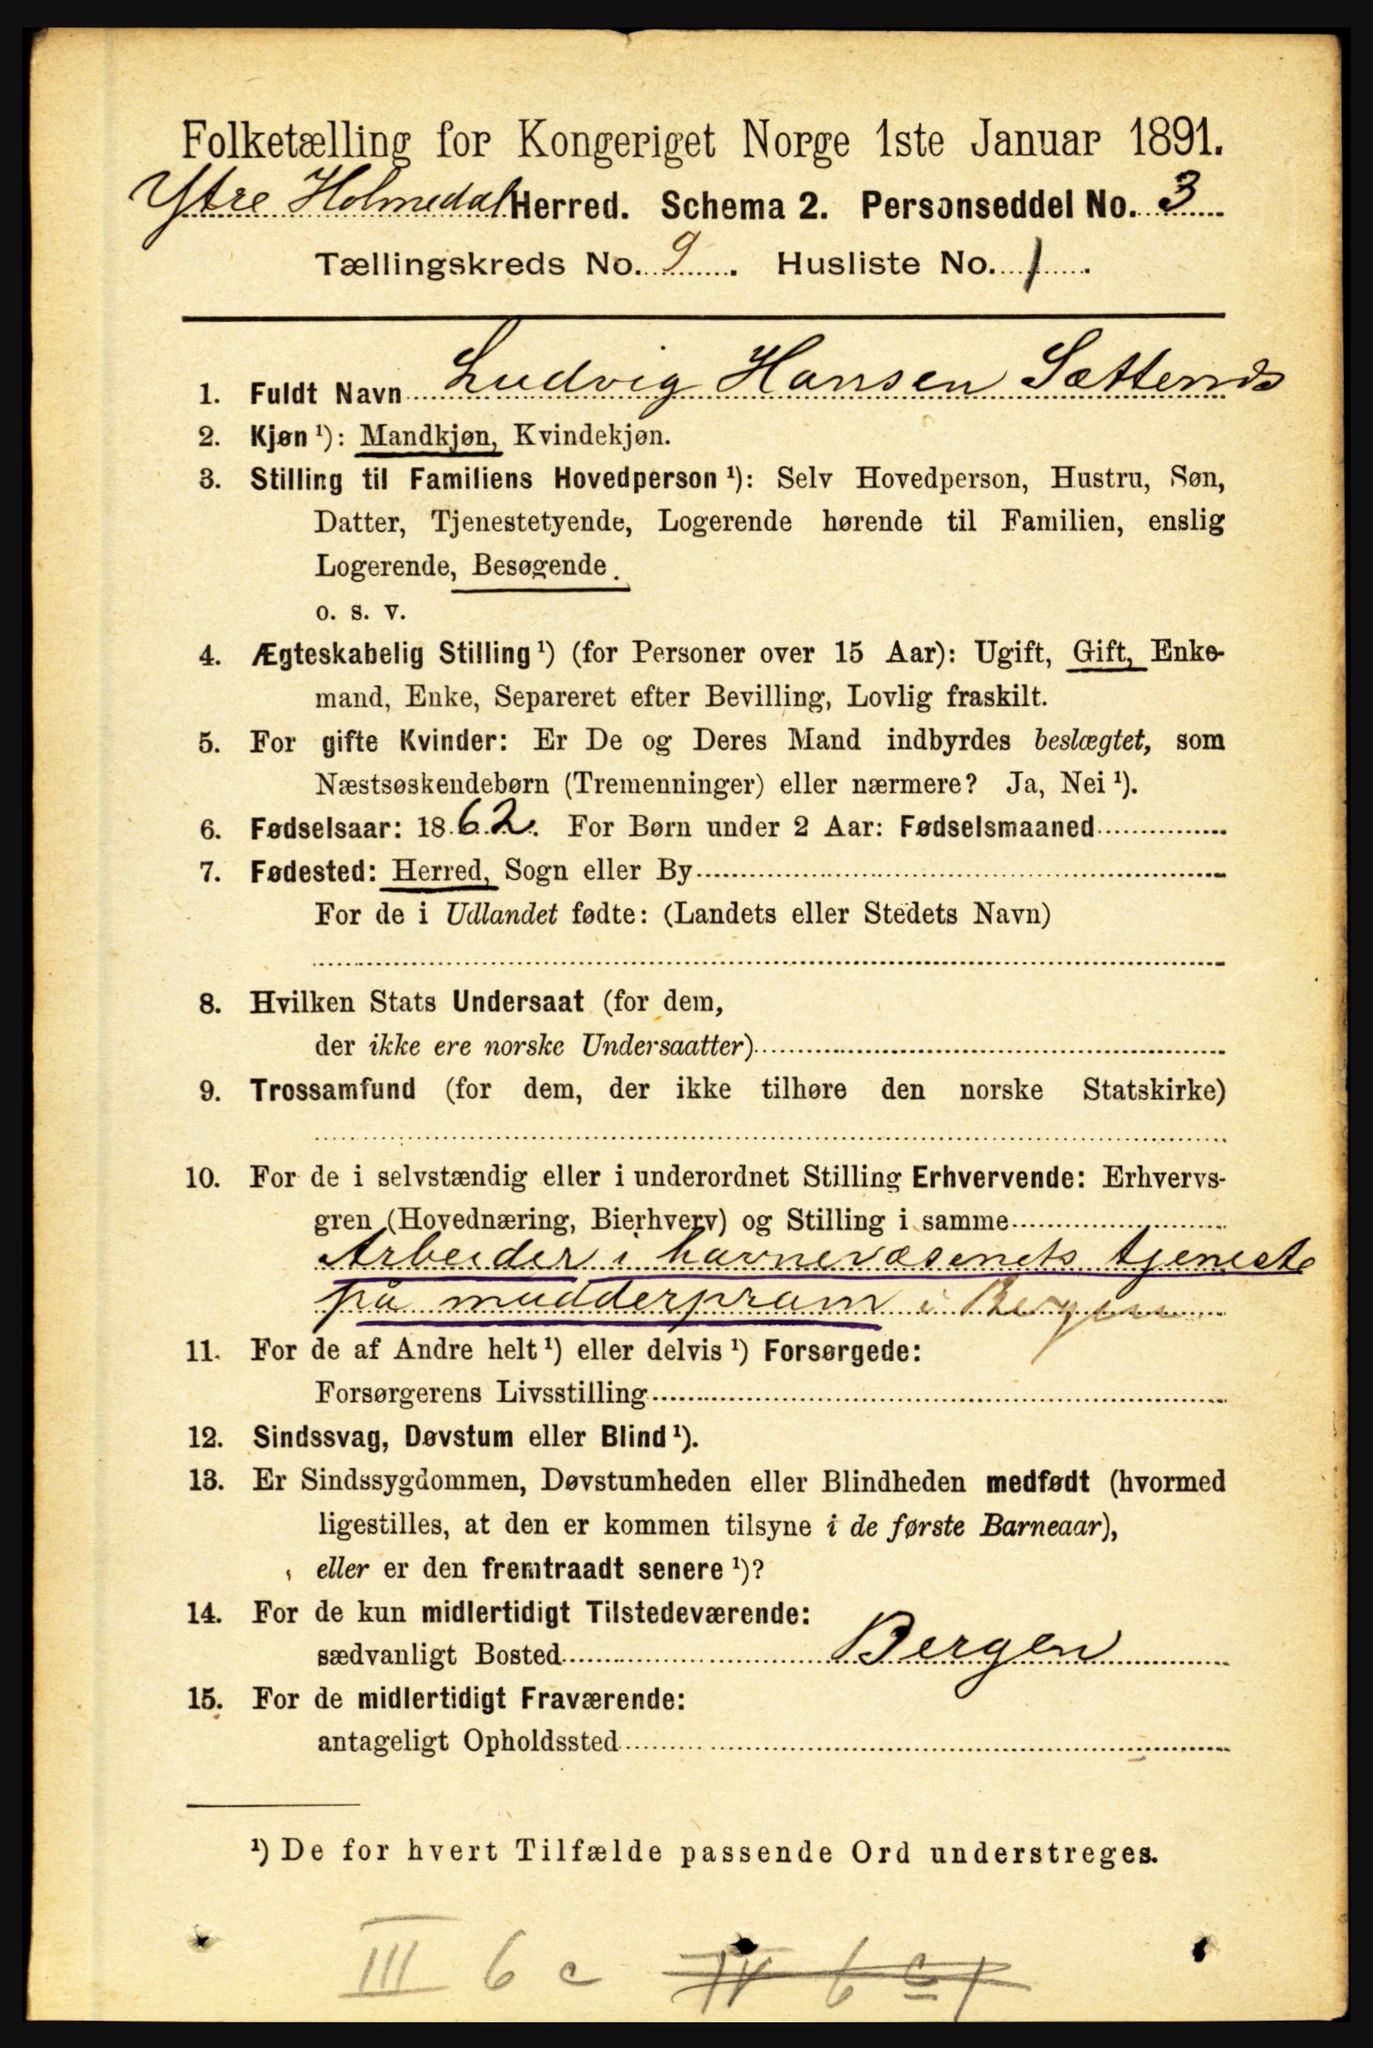 Folketælling for Kongeriget Norge 1ste Januar 1891.
Ytre Holmedal Herred. Schema 2. Personseddel No. 3
Tællingskreds No. 9. Husliste No. 1.
1. Fuldt Navn Ludvig Hansen
2. Kjøn ¹): Mandkjøn, Kvindekjøn.
3. Stilling til Familiens Hovedperson ¹): Selv Hovedperson, Hustru, Søn,
Datter, Tjenestetyende, Logerende hørende til Familien, enslig
Logerende, Besøgende.
o. s. v.
4. Ægteskabelig Stilling ¹) (for Personer over 15 Aar): Ugift, Gift, Enke-
mand, Enke, Separeret efter Bevilling, Lovlig fraskilt.
5. For gifte Kvinder: Er De og Deres Mand indbyrdes beslægtet, som
Næstsøskendebørn (Tremenninger) eller nærmere? Ja, Nei ¹).
6. Fødselsaar: 1862. For Børn under 2 Aar: Fødselsmaaned
7. Fødested: Herred, Sogn eller By
For de i Udlandet fødte: (Landets eller Stedets Navn)
8. Hvilken Stats Undersaat (for dem,
der ikke ere norske Undersaatter)
9. Trossamfund (for dem, der ikke tilhøre den norske Statskirke)
10. For de i selvstændig eller i underordnet Stilling Erhvervende: Erhvervs-
gren (Hovednæring, Bierhverv) og Stilling i samme
Arbeider i havnevæsenets tjeneste
på mudderpram i Bergen
11. For de af Andre helt ¹) eller delvis ¹) Forsørgede:
Forsørgerens Livsstilling
12. Sindssvag, Døvstum eller Blind ¹).
13. Er Sindssygdommen, Døvstumheden eller Blindheden medfødt (hvormed
ligestilles, at den er kommen tilsyne i de første Barneaar),
eller er den fremtraadt senere ¹)?
14. For de kun midlertidigt Tilstedeværende:
sædvanligt Bosted Bergen
15. For de midlertidigt Fraværende:
antageligt Opholdssted
¹) De for hvert Tilfælde passende Ord understreges.
III 6 c IV 6 c 1